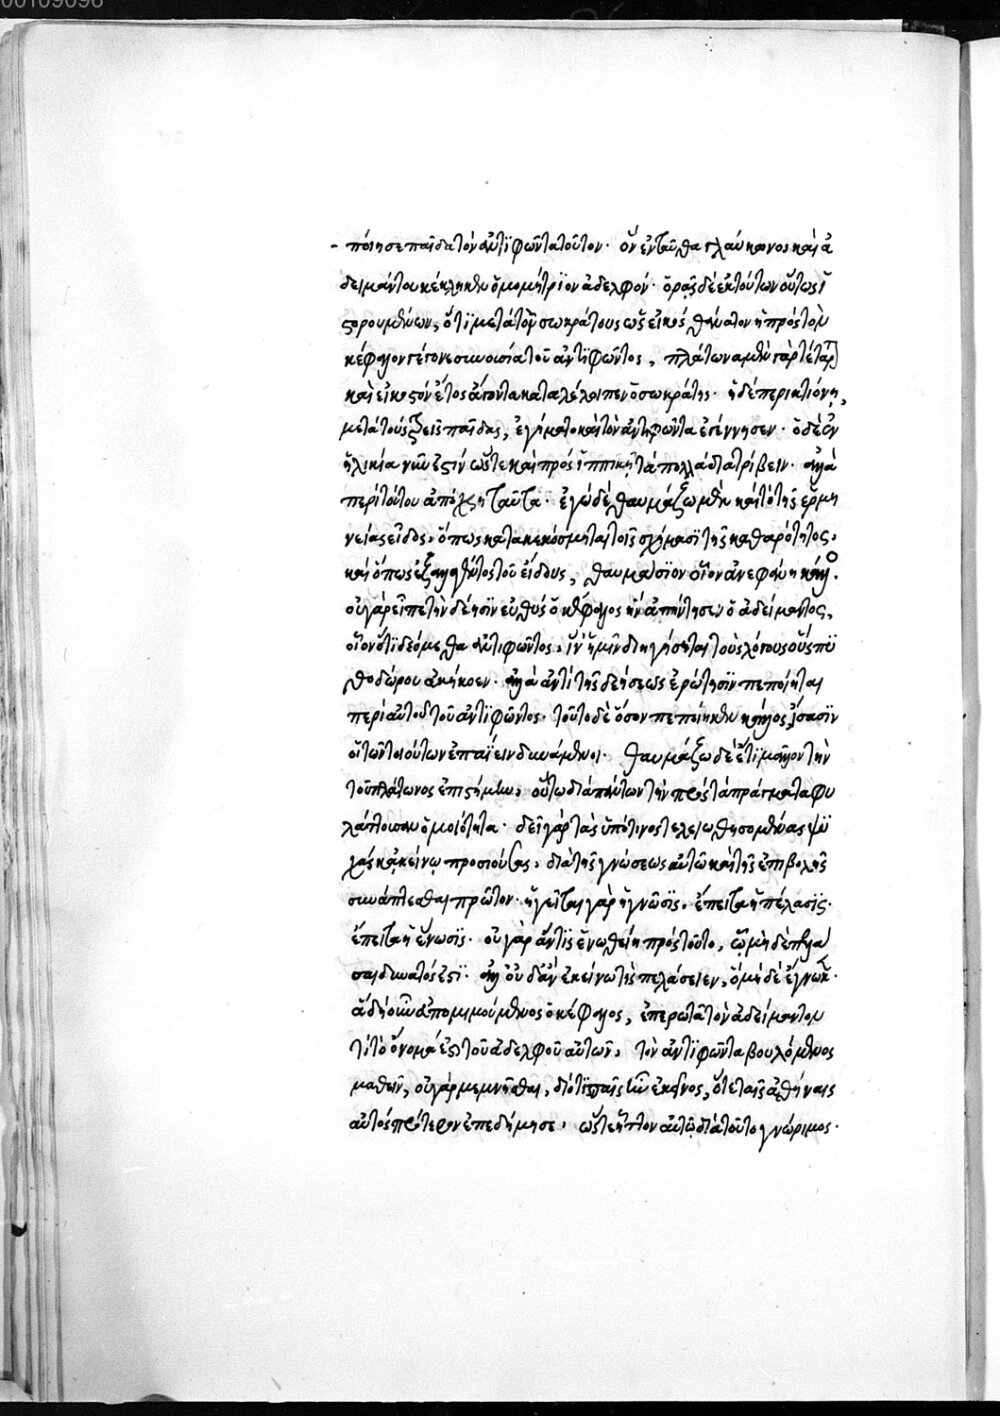 00109098
ποίησε παῖδα τὸν ἀντιφῶντα τοῦτον· ὃν ἐνταῦθα γλαύκωνος καὶ ἀ
δειμάντου κέκληκεν ὁμομήτριον ἀδελφόν· ὁρᾷς δὲ ἐκ τούτων οὕτως ἱ
στορουμένων, ὅτι μετὰ τὸν σωκράτους ὡς εἰκός, θάνατον ἡ πρὸς τὸν
κέφαλον γέγονε συνουσία τοῦ ἀντιφῶντος, πλάτωνα μὲν γὰρ τέταρ
καὶ εἰκοστὸν ἔτος ἄγοντα καταλέλοιπεν ὁ σωκράτης· ἡ δὲ περικτιόνη,
μετὰ τοὺς ἑξῆς παῖδας, ἐγήματο καὶ τὸν ἀντιφῶντα ἐγέννησεν· ὁ δὲ ἐν
ἡλικία νῦν ἐστίν ὥστε καὶ πρὸς ἱππικῇ τὰ πολλὰ διατρίβειν· ἀλλὰ
περὶ τούτου ἀπόχρη ταῦτα· ἐγὼ δὲ θαυμάζω μὲν καὶ τὸ τῆς ἑρμη
νείας εἶδος, ὅπως κατακεκόσμηται τοῖς σχήμασι τῆς καθαρότητος,
καὶ ὅπως ἐξαλλαγέντος τοῦ εἴδους, θαυμάσιον οἷον ἀνεφάνη κάλλο.
οὐ γὰρ εἶπε τὴν δέησιν εὐθὺς ὁ κέφαλος ἣν ἀπήντησεν ὁ ἀδείμαντος,
οἷον ὅτι δεόμεθα ἀντιφῶντος, ἵν' ἡμῖν διηγήσηται τοὺς λόγους οὓς πυ
θοδώρου ἀκήκοεν· ἀλλὰ ἀντὶ τῆς δεήσεως ἐρώτησιν πεποίηται
περὶ αὐτοῦ τοῦ ἀντιφῶντος· τοῦτο δὲ ὅσον πεποίηκεν κάλλος, ἴσασιν
οἱ τῶν τοιούτων ἐπαΐειν δυνάμενοι· θαυμάζω δὲ ἔτι μᾶλλον τὴν
τοῦ πλάτωνος ἐπιστήμην, οὕτω διὰ πάντων τὴν πρὸς τὰ πράγματα φυ
λάττουσαν ὁμοιότητα· δεῖ γὰρ τὰς ὑπό τινος τελειωθησομένας ψυ
χὰς κἀκείνῳ προσιούσας, διὰ τῆς γνώσεως αὐτῶ καὶ τῆς ἐπιβολῆς
συνάπτεσθαι πρῶτον· ἡγεῖται γὰρ ἡ γνῶσις, ἔπειτα ἡ πέλασις·
ἔπειτα ἡ ἕνωσις· οὐ γὰρ ἄν τις ἑνωθείη πρὸς τοῦτο, ᾧ μὴ δὲ πελά
σαι δυνατός ἐστι· ἀλλ' οὐδ' ἂν ἐκείνω τὶς πελάσειεν, ὃ μὴ δὲ ἔγνωκ·
ἃ δὴ οὖν ἀπομιμούμενος ὁ κέφαλος, ἐπερωτᾶ τὸν ἀδείμαντον
τί τὸ ὄνομά ἐστι τοῦ ἀδελφοῦ αὐτῶν, τὸν ἀντιφῶντα βουλόμενος
μαθεῖν, οὐ γὰρ μεμνῆσθαι, διότι παῖς ἦν ἐκεῖνος, ὅτε ταῖς ἀθήναις
αὐτὸς πρότερον ἐπεδήμησε, ὥστε ἧττον αὐτῷ διὰ τοῦτο γνώριμος·